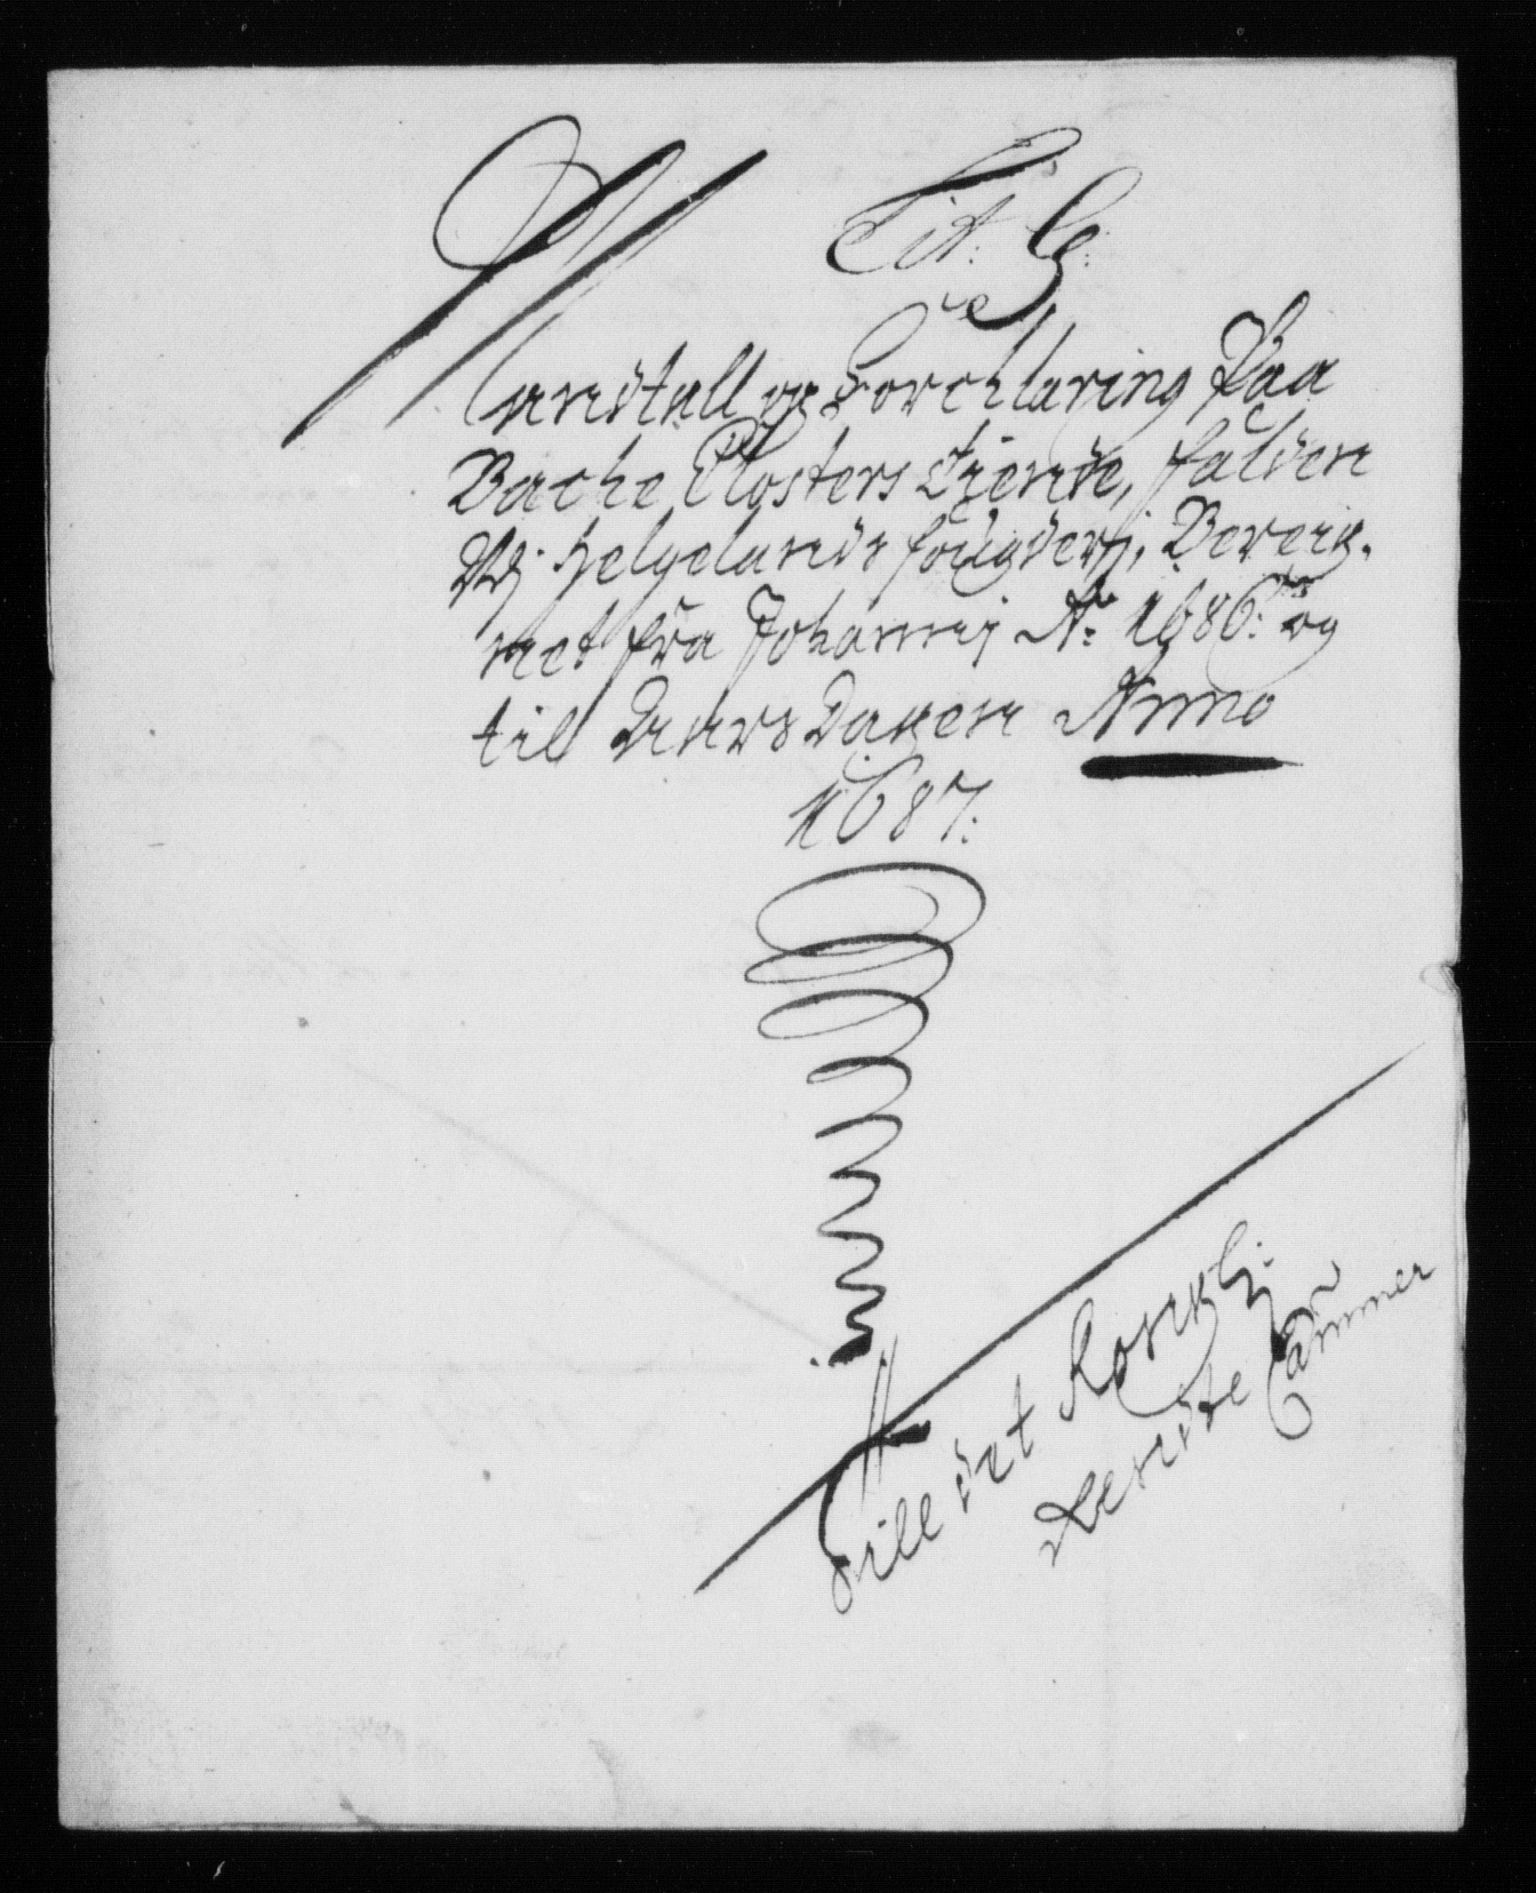 Lit: G:
Mandtall og Forchlaring Paa
Bache Closters Tiende, falden
Vdj Helgelands fougderj, Bereig,
net fra Johannj A.o 1686: og
til Aars Dagen Anno
1687:
Till det Kongl:
Rendte Cammer